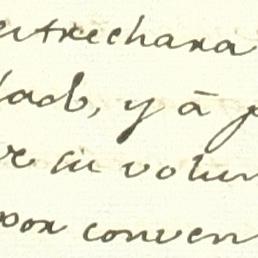 estrechara
dad, y á p
re su volun
por conven